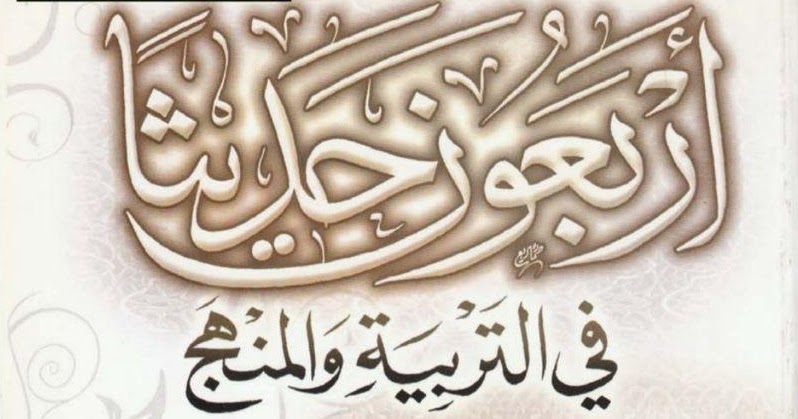 أربعون حديثا
في التَربِيَةِ وَالمنهَج